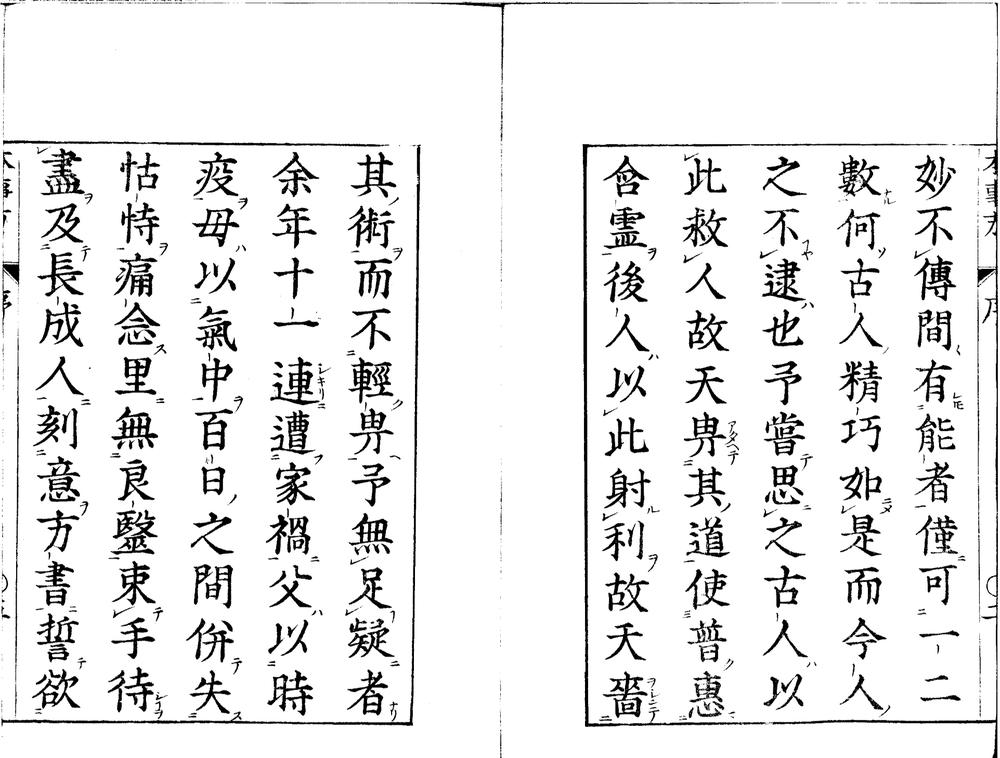 妙不傳間有能者僅可一二
數何古人精巧如是而今人
之不逮也予嘗思之古人以
此救人故天畀其道使普惠
含霊後人以此射利故天嗇
其術而不輕畀予無足疑者
余年十一連遭家禍父以時
疫母以氣中百日之間併失
怙恃痛念里無良毉束手待
盡及長成人刻意方書誓欲